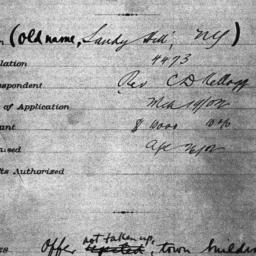 (Old name, Sandy Hill, NY)
lation 4473
spondent Rev C D Kellogg
of Application Mch 19/02
ant $ 10000
ised Apr 2/02
ts Authorized
Offer not taken up, rejected, town buildin